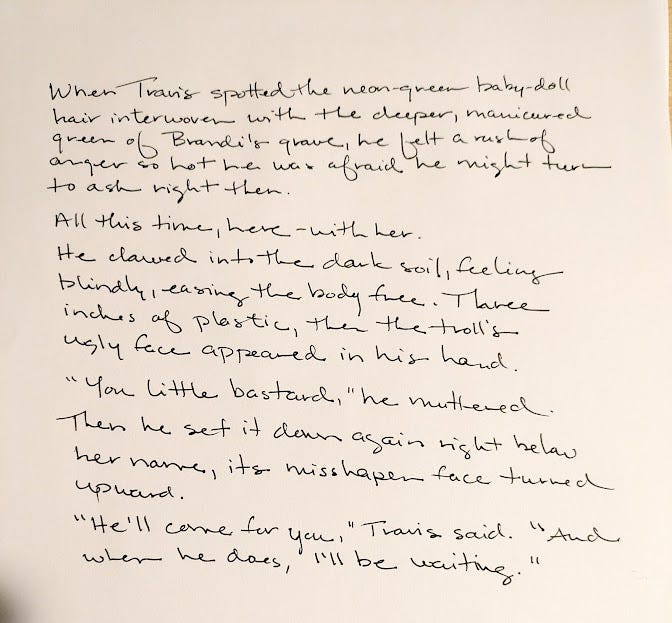 When Travis spotted the neon-green baby-doll
hair interwoven with the deeper, manicured
green of Brandi's grave, he felt a rush of
anger so hot he was afraid he might turn
to ash right then.
All this time, here - with her.
He clawed into the dark soil, feeling
blindly, easing the body free. Three
inches of plastic, then the troll's
ugly face appeared in his hand.
"You little bastard," he muttered.
Then he set it down again right below
her name, its misshapen face turned
upward.
"He'll come for you," Travis said. "And
when he does, I'll be waiting."